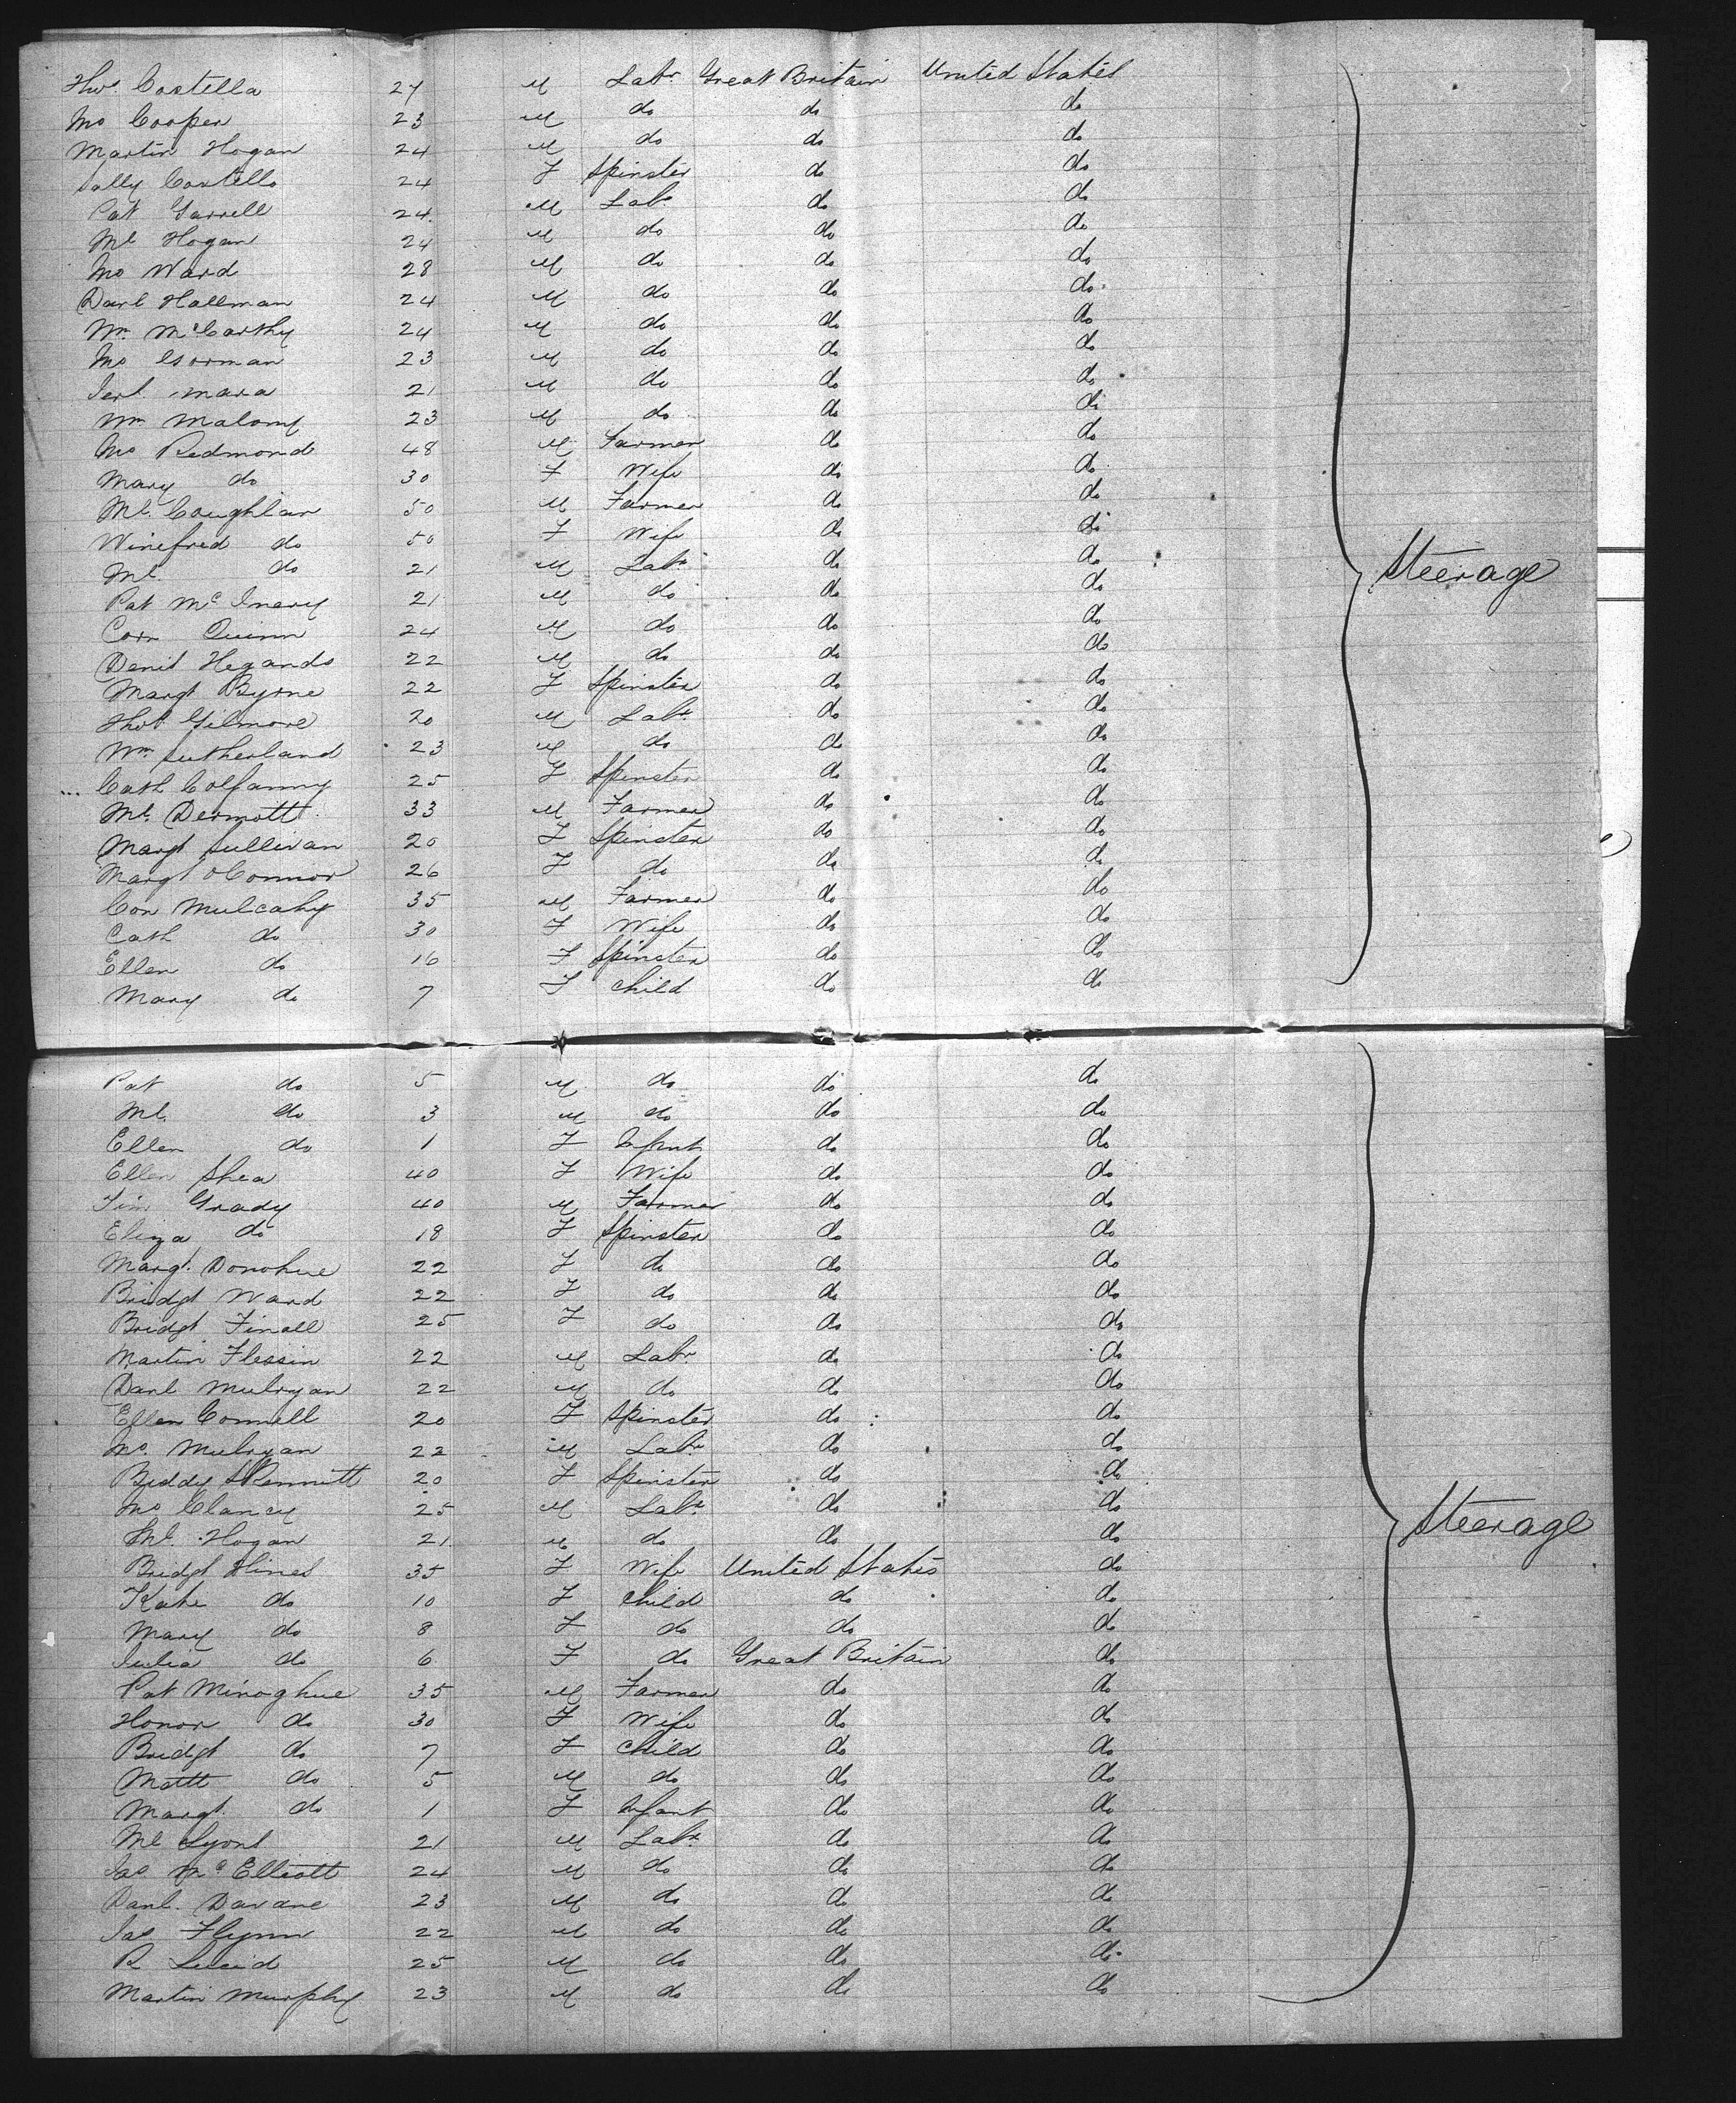 Thos. Costella 27 M Labr. Great Britain United States
Mo Cooper 23 M do do do
Martin Hogan 24 M do do do
Sally Costello 24 F Spinster do do
Pat Farrell 24 M Labr do do
Ml Hogan 24 M do do do
Mo Ward 28 M do do do
Danl Hallman 24 M do do do
Wm McCarthy 24 M do do do
Mo Gorman 23 M do do do
Mara 21 M do do do
Wm Malony 23 M do do do
Mo Redmond 48 M Farmer do do
Mary do 30 F Wife do do
Ml. Coughlan 50 M Farmer do do
Winefred do 50 F Wife do do
Ml. do 21 M Labr do do
Steerage
Pat McInery 21 M do do do
Corn Quinn 24 M do do do
Denis 22 M do do do
Margt Byrne 22 F Spinster do do
Thos. Gilmore 20 M Labr. do do
Wm Sutherland 23 M do do do
Cath 25 F Spinster do do
Ml. Dermott 33 M Farmer do do
Margt Sullivan 20 F Spinster do do
Margt OConnor 26 F do do do
Con Mulcahy 35 M Farmer do do
Cath do 30 F Wife do do
Ellen do 16 F Spinster do do
Mary do 7 F Child do do
Pat do 5 M do do do
Ml. do 3 M do do do
Ellen do 1 F Infant do do
Ellen Shea 40 F Wife do do
Tim Grady 40 M Farmer do do
Eliza do 18 F Spinster do do
Margt. Donohue 22 F do do do
Bridgt Ward 22 F do do do
Bridgt Finall 25 F do do do
Martin Flessin 22 M Labr. do do
Danl Mulryan 22 M do do do
Ellen Connell 20 F Spinster do do
Mo. Mulryan 22 M Labr do do
Biddy 20 F Spinster do do
Mo Clancy 25 M Labr. do do
Steerage
Ml. Hogan 21 M do do do
Bridgt Hines 35 F Wife United States do
Kate do 10 F Child do do
Mary do 8 F do do do
Julia do 6 F do Great Britain do
Pat Minoghue 35 M Farmer do do
Honor do 30 F Wife do do
Bridgt do 7 F Child do do
Matt do 5 M do do do
Margt. do 1 F Infant do do
Ml Lyons 21 M Labr do do
Jas McElliott 24 M do do do
Danl. Davane 23 M do do do
Jas Flynn 22 M do do do
R Lucid 25 M do do do
Martin Murphy 23 M do do do